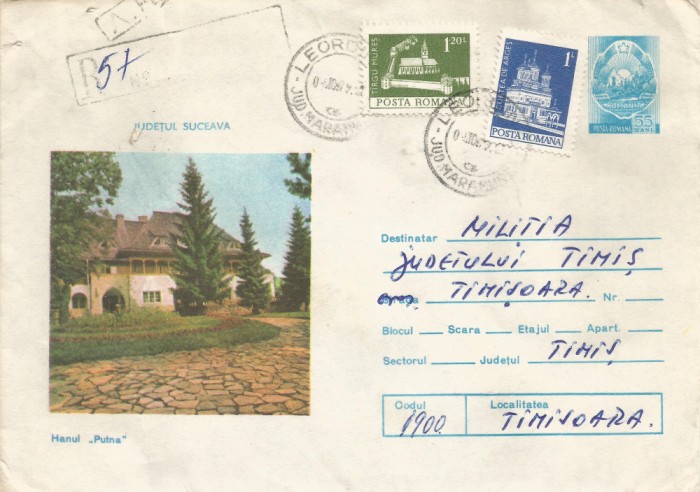 A.
R
57
No
JUDEȚUL SUCEAVA
Hanul „Putna”
TIRGU MUREȘ
1,20 L
POSTA ROMANA
CURTEA DE ARGEȘ
1 L
POSTA ROMANA
POSTA ROMANA
55
BANI
LEORD
JUD. MARAMUREȘ
LEOR
JUD. MARAMUREȘ
Destinatar MILITIA
JUDETULUI TIMIȘ
TIMIȘOARA. Nr.
Blocul Scara Etajul Apart.
Sectorul Județul TIMIȘ
Codul 1900
Localitatea TIMISOARA.